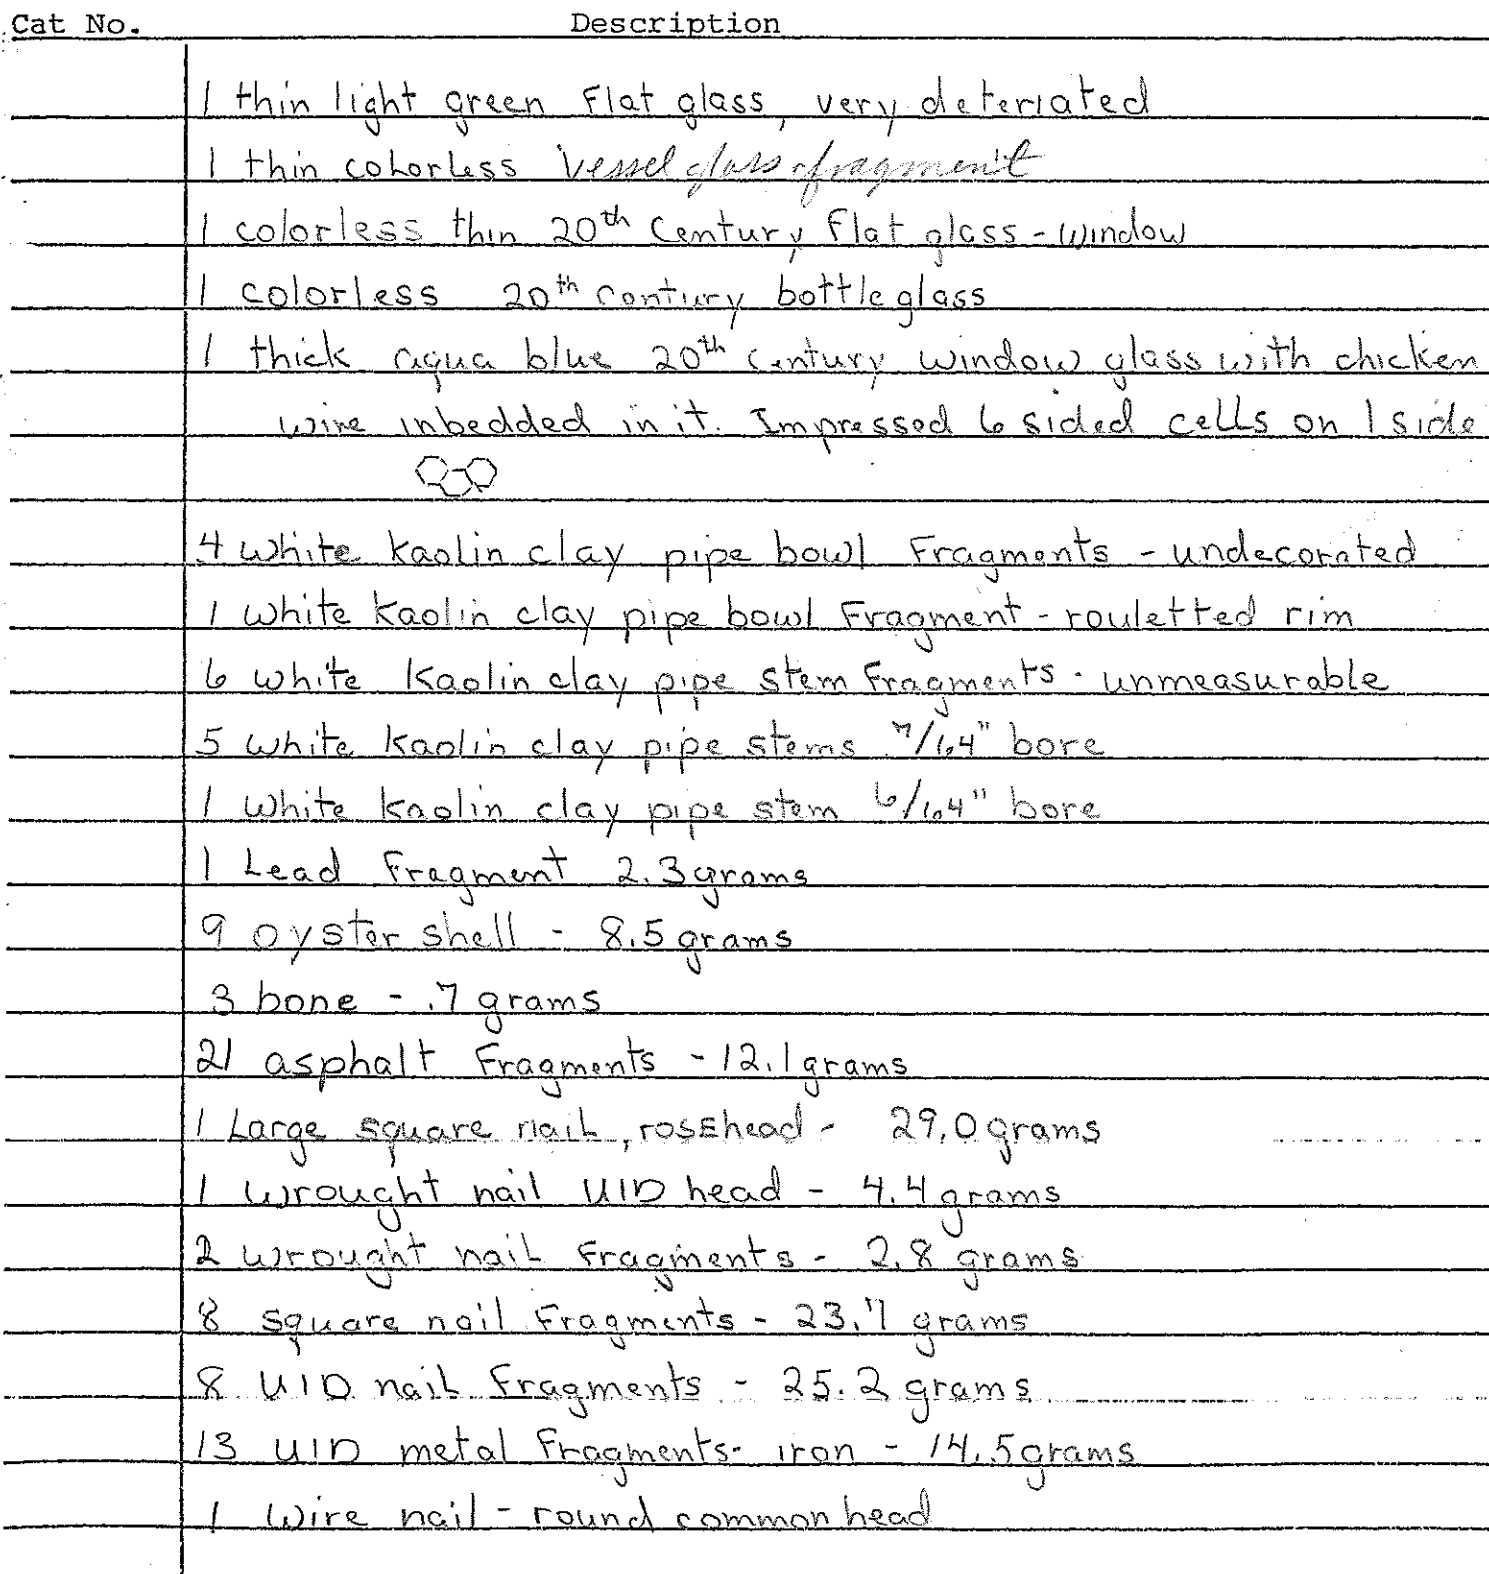 Cat No. Description
1 thin light green flat glass, very deteriated
1 thin colorless vessel glass fragment
1 colorless thin 20th Century flat glass - window
1 colorless 20th century bottle glass
1 thick aqua blue 20th century window glass with chicken
wire inbedded in it. Impressed 6 sided cells on 1 side
4 white kaolin clay pipe bowl Fragments - undecorated
1 white kaolin clay pipe bowl Fragment - rouletted rim
6 white kaolin clay pipe stem fragments - unmeasurable
5 white kaolin clay pipe stems 7/64" bore
1 white kaolin clay pipe stem 6/64" bore
1 Lead Fragment 2.3 grams
9 oyster shell - 8.5 grams
3 bone - .7 grams
21 asphalt Fragments - 12.1 grams
1 Large square nail, rosehead - 29.0 grams
1 wrought nail UID head - 4.4 grams
2 wrought nail fragments - 2.8 grams
8 square nail Fragments - 23.7 grams
8 UID nail fragments - 25.2 grams
13 UID metal fragments - iron - 14.5 grams
1 wire nail - round common head